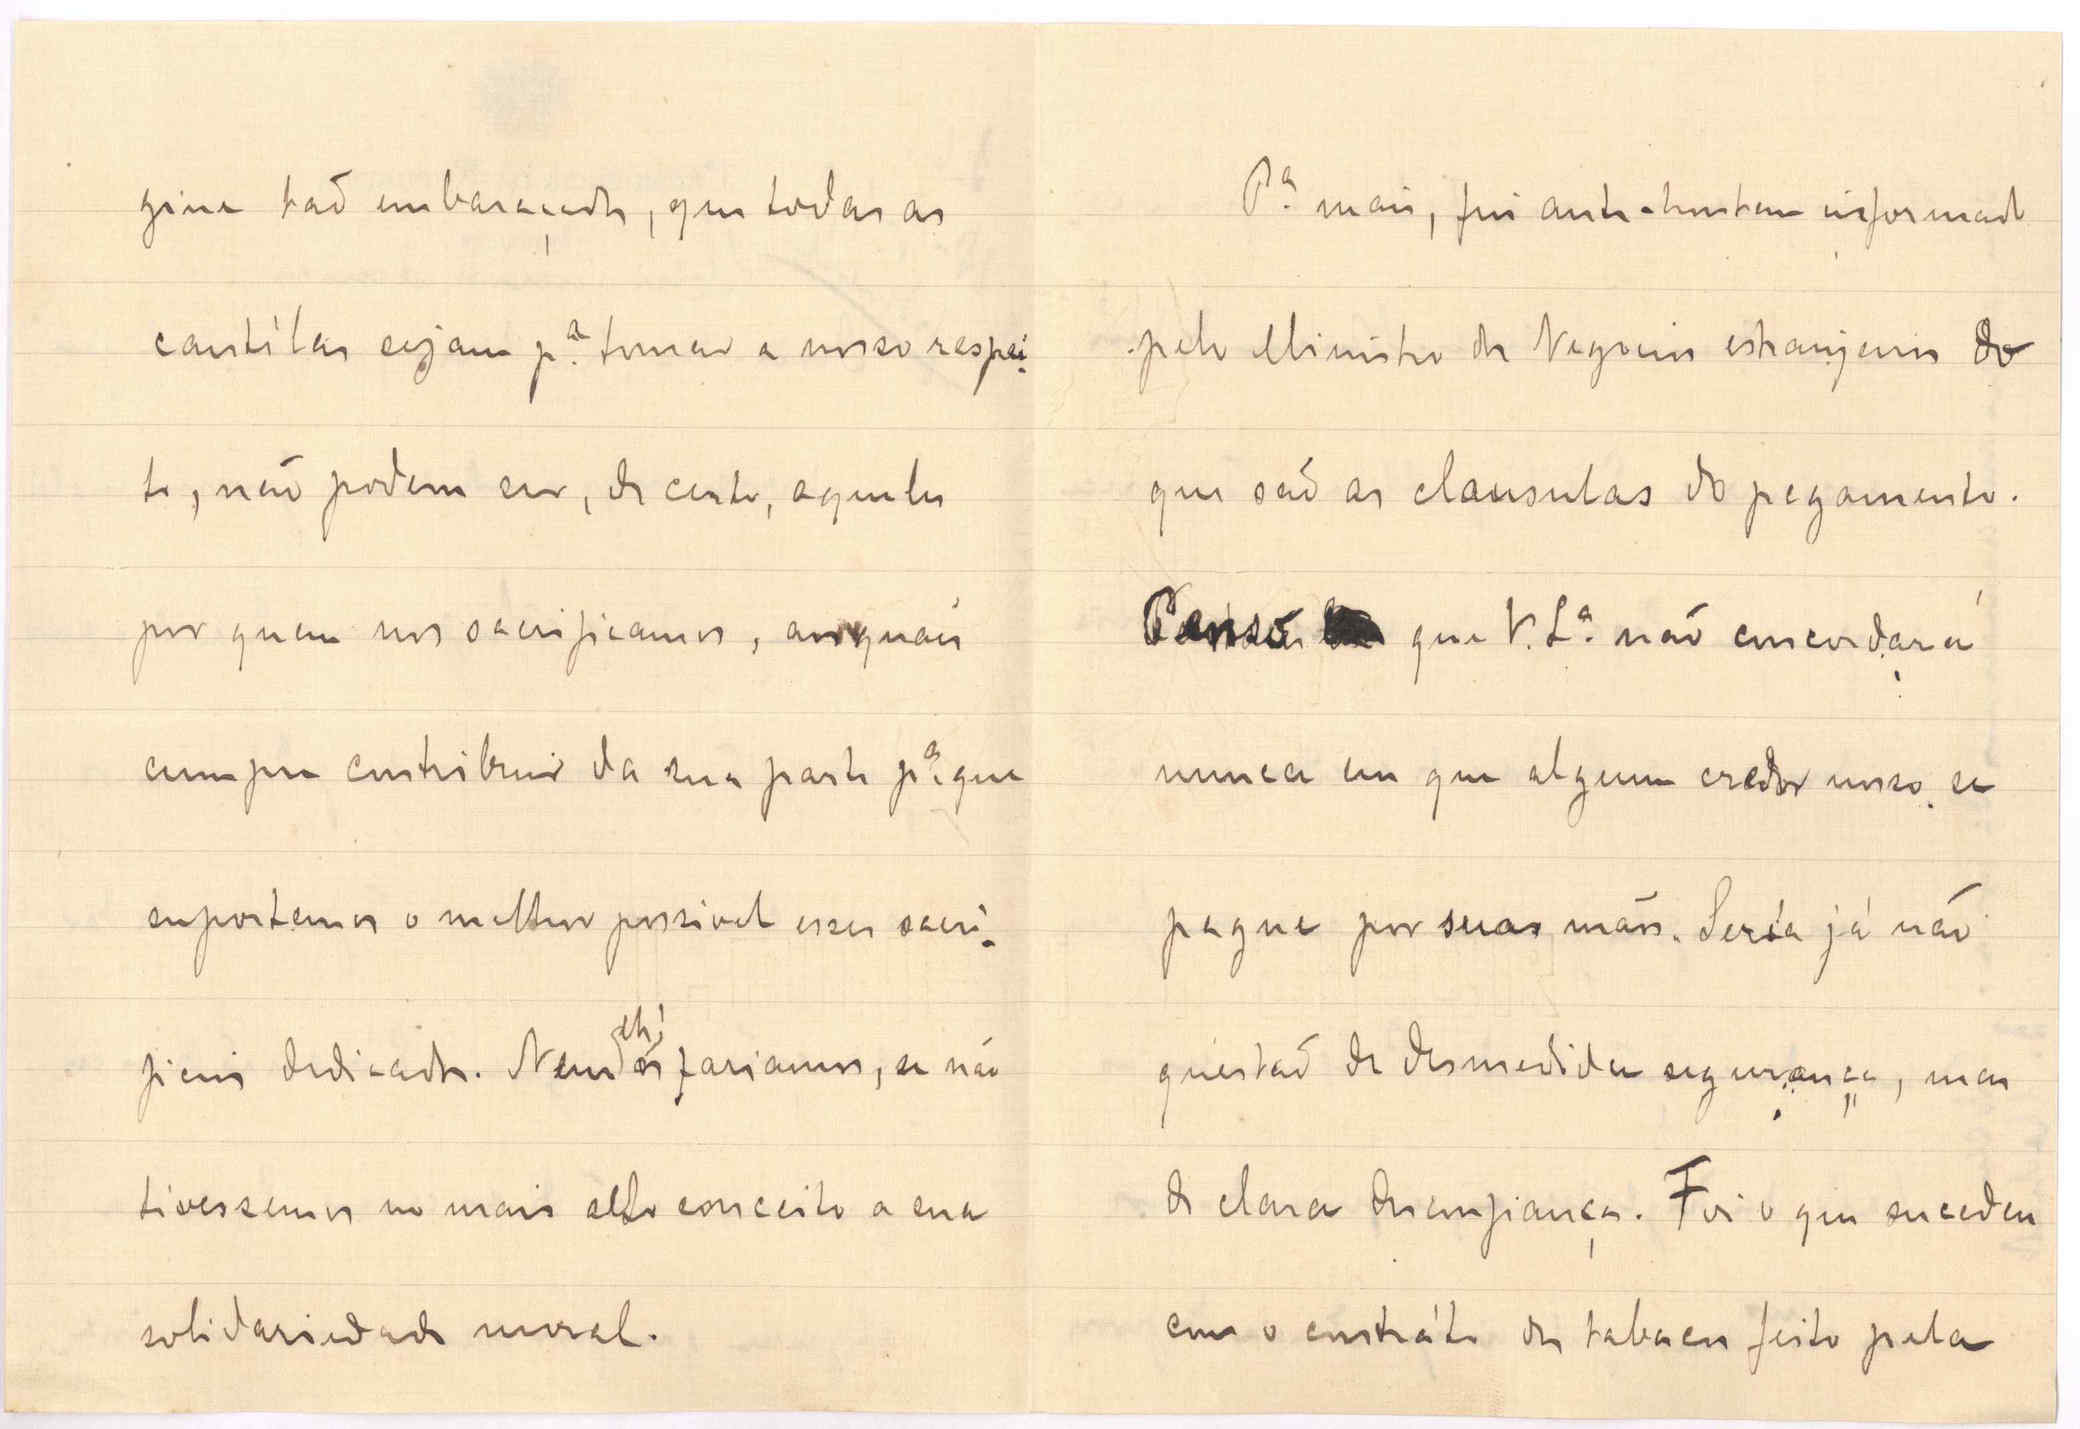 gine tão embaraçados, que todas as
cautélas sejam p.ª tomar a nosso respei-
to, não podem ser, de certo, aqueles
por quem nos sacrificamos, aos quais
cumpre contribuir da sua parte p.ª que
suportemos o melhor possivel esses sacri-
ficios dedicados. Nem os fariamos, se não
tivessemos no mais alto conceito a sua
solidariedade moral.
P.ª mais, fui ante-hontem informado
pelo Ministro dos Negocios estranjeiros do
que são as clausulas do pagamento.
Penso que V. S.ª não concordará
nunca em que algum credor nosso se
pague por suas mãos. Sería já não
questão de desmedida segurança, mas
de clara desconfiança. Foi o que sucedeu
com o contráto dos tabacos feito pela